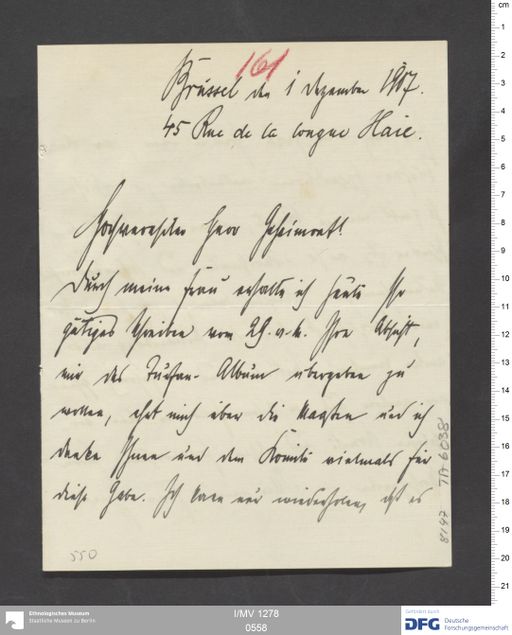 161
Brüssel den 1 Dezember 1907.
45 Rue de la longue Haie.
Hochverehrter Herr Geheimrat!
Durch meine Frau erhalte ich heute Ihr
gütiges Schreiben vom 29. v. M. Ihre Absicht,
mir das Turfan-Album übergeben zu
wollen, ehrt mich über die Maßen und ich
danke Ihnen und dem Komité vielmals für
diese Gabe. Ich kann nur wiederholen, daß es
550
8147 TA 6038
cm
1
2
3
4
5
6
7
8
9
10
11
12
13
14
15
16
17
18
19
20
21
Ethnologisches Museum
Staatliche Museen zu Berlin
I/MV 1278
0558
Gefördert durch
DFG Deutsche
Forschungsgemeinschaft